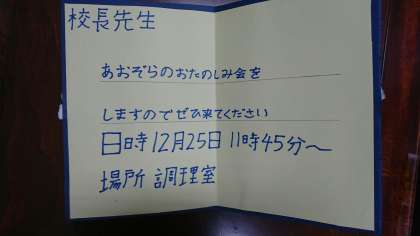 校長先生
あおぞらのおたのしみ会を
しますのでぜひ来てください
日時 12月25日 11時45分〜
場所 調理室